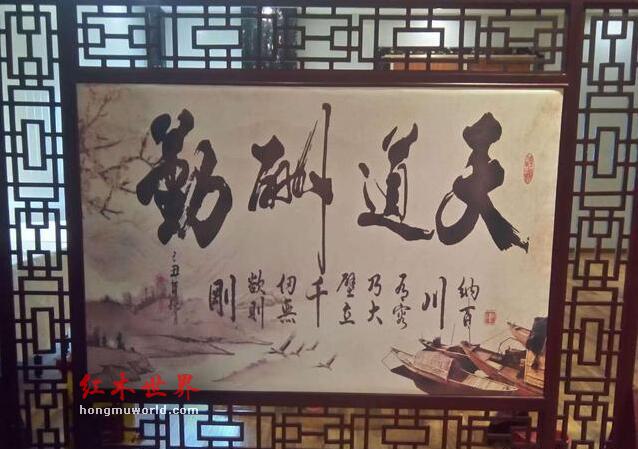 天道酬勤
纳百
川
有容
乃大
壁立
千
仞無
欲则
剛
己丑
红木世界
hongmuworld.com